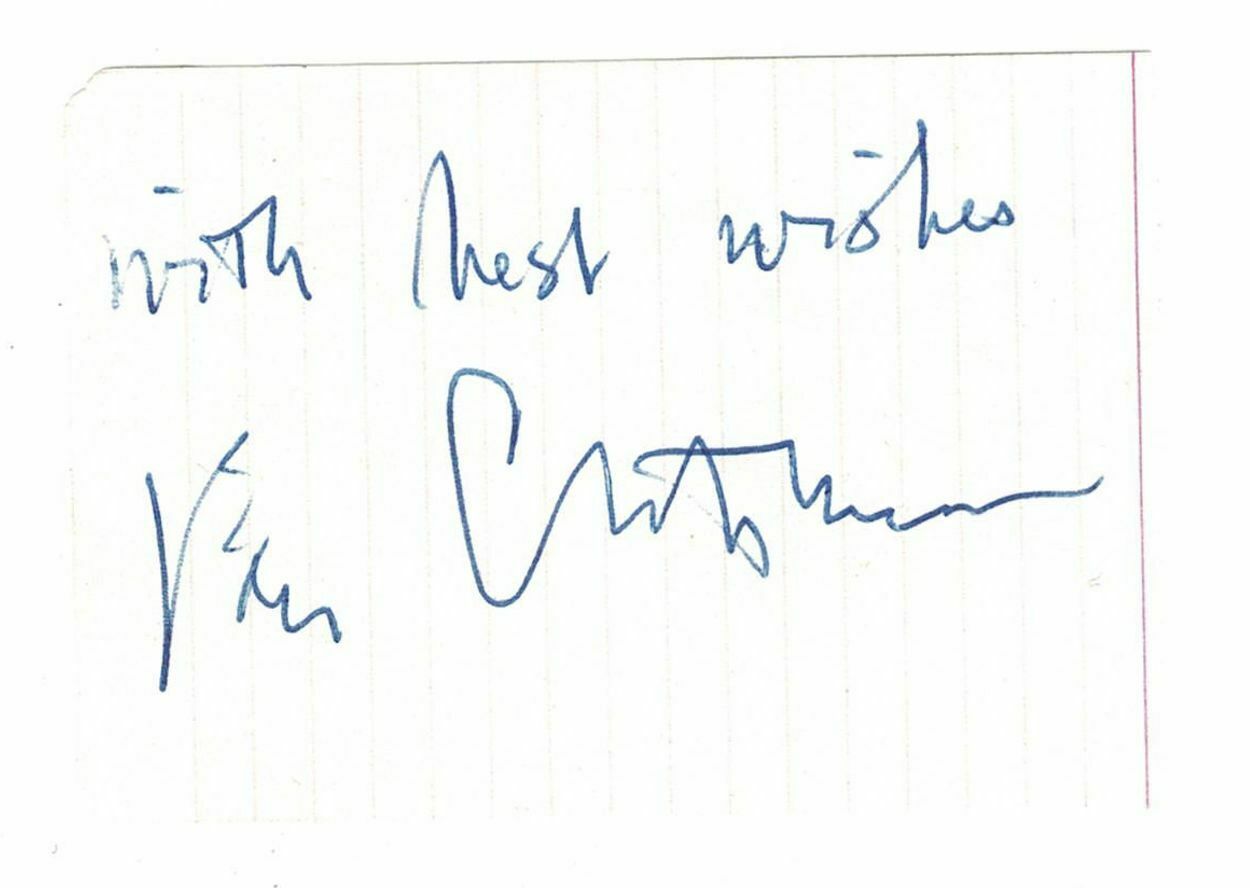 with best wishes
Ken